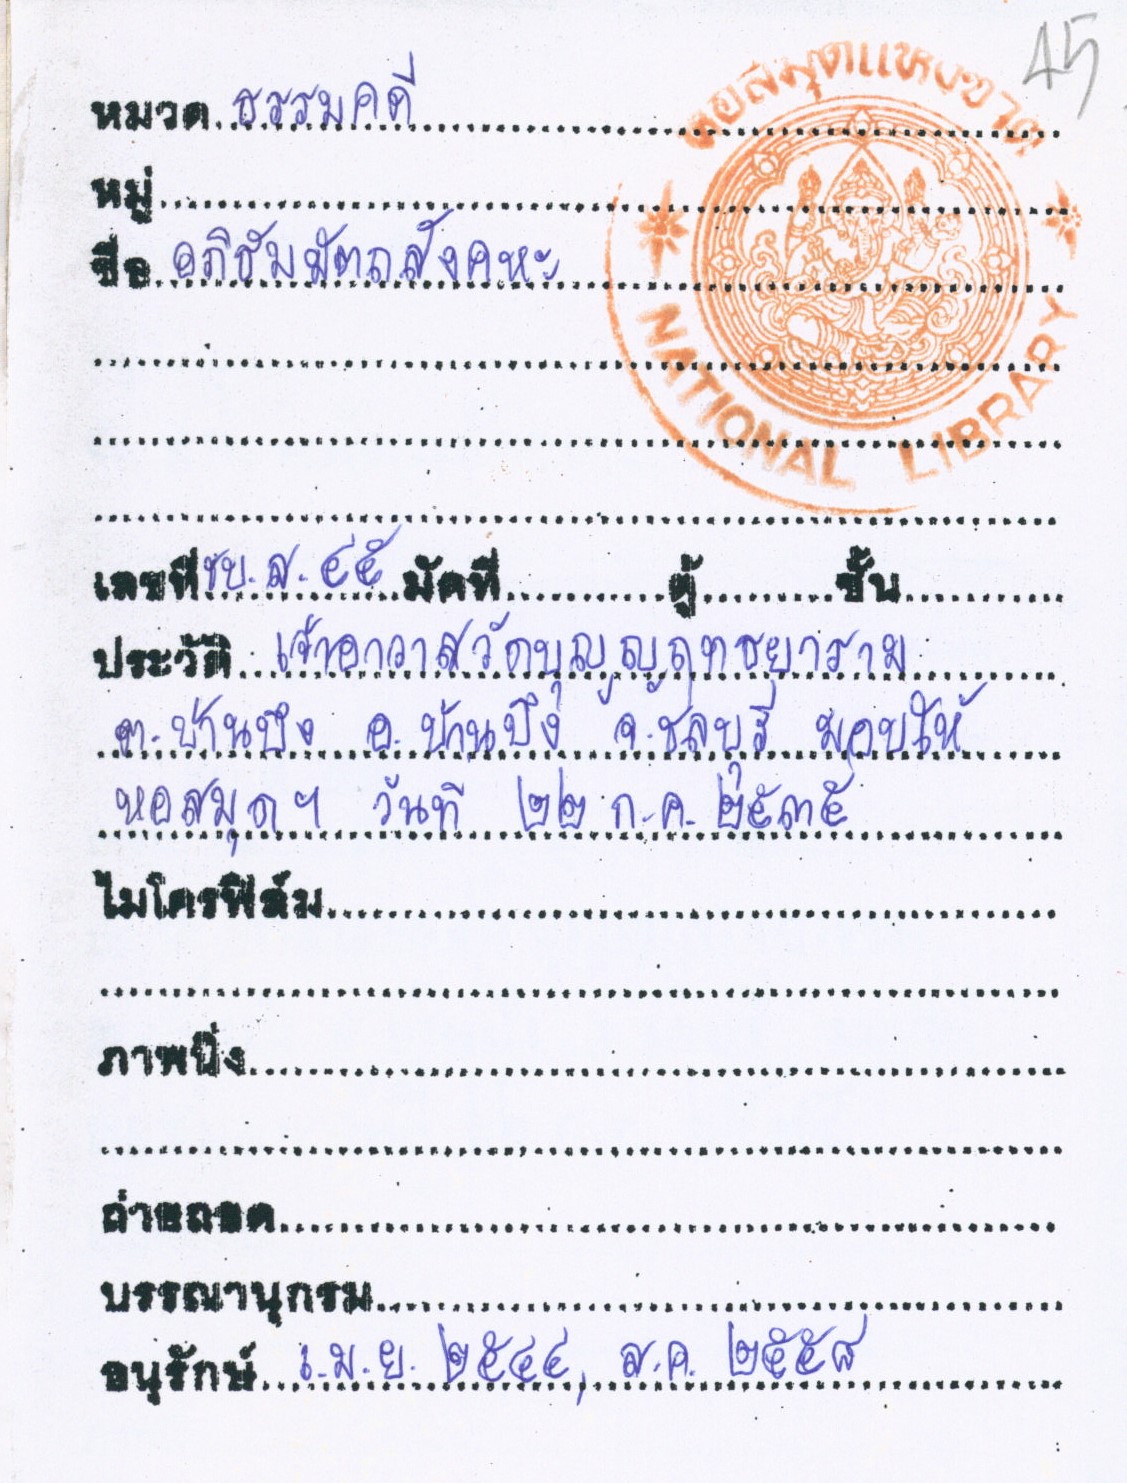 45
หอสมุดแห่งชาติ
NATIONAL LIBRARY
หมวด ธรรมคดี
หมู่
ชื่อ อภิธัมมัตถสังคหะ
เลขที่ ชบ.ส.๔๕ มัดที่ ตู้ ชั้น
ประวัติ เจ้าอาวาสวัดบุญญฤทธยาราม
ต.บ้านบึง อ.บ้านบึง จ.ชลบุรี มอบให้
หอสมุดฯ วันที่ ๒๒ ก.ค. ๒๕๓๕
ไมโครฟิล์ม
ภาพนิ่ง
ถ่ายถอด
บรรณานุกรม
อนุรักษ์ เม.ย. ๒๕๔๔, ส.ค. ๒๕๕๘